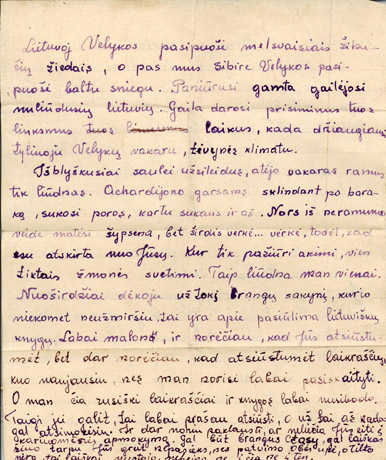 Lietuvoj Velykos pasipuošė melsvaisiais žibu-
čių žiedais, o pas mus Sibire Velykos pasi-
puošė baltu sniegu. Paniūrusi gamta gailėjosi
nuliūdusių lietuvių. Gaila darosi prisiminus tuos
linksmus laikus, kada džiaugiaus
žyliuoju Velykų vakaru, tėvynės klimatu.
Išblyškusiai saulei užsileidus, atėjo vakaras ramus
tik liūdnas. Achardijono garsavo sklindant po bara-
ką, sukosi poros, kartu sukaus ir aš. Nors iš
veide matėsi šypsena, bet širdis verkė... verkė, todėl, kad
esu atskirta nuo Jūsų. Kur tik pažiūri akimi, vien
tiktais žmonės svetimi. Taip liūdna man vienai.
Nuoširdžiai dėkoju už tokį brangų sakinį, kurio
niekomet neužmiršiu. tai yra apie pasiūlimą lietuviškų
knygų. Labai malonė, ir norėčiau, kad Jūs atsiūstu-
mėt, bet dar norėčiau, kad atsiūstumėt laikraščių
kuo naujausiu, nes man norisi labai pasiskaityti.
O man čia rusiški laikraščiai ir knygos labai nusibodo.
Taigi jei galit, tai labai prašau atsiųsti, o už tai aš kada
gal atsilyginsiu. Ir dar noriu paklausti, ar
apmokymą. Gal būt brangus čėsy, gal laikas